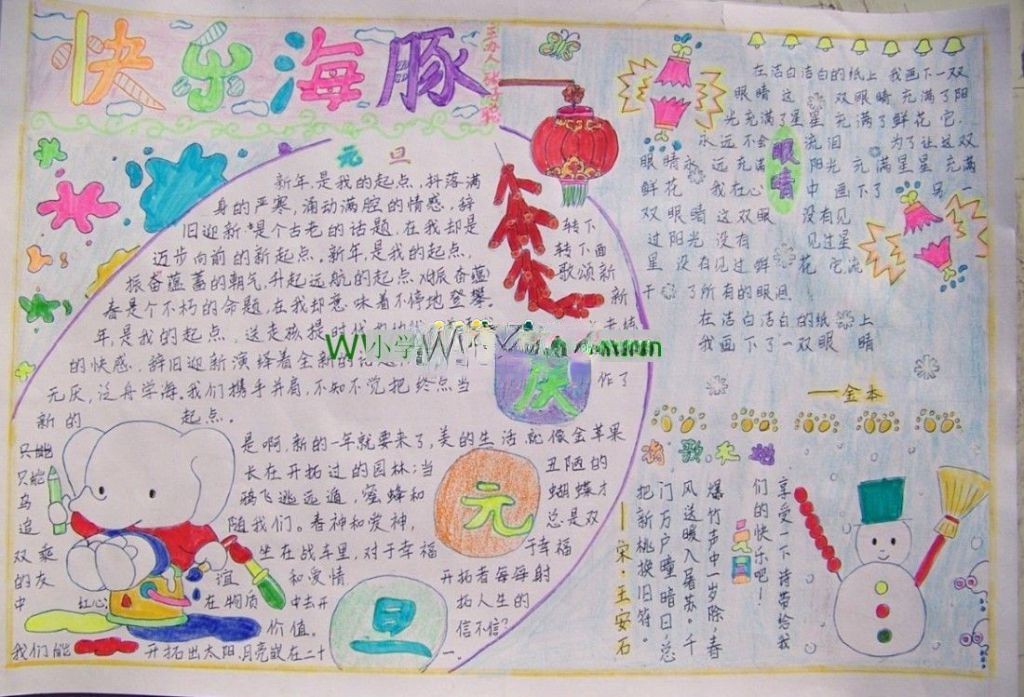 快乐海豚
主办人
元旦
新年是我的起点,抖落满
身的严寒,涌动满腔的情感,辞
旧迎新是个古老的话题,在我却是
迈步向前的新起点。新年是我的起点,
振奋蕴蓄的朝气,升起远航的起点
春是个不朽的命题,在我却意味着不停地登攀。
年是我的起点,送走孩提时代
的快感,辞旧迎新演绎着全新的
无厌,泛舟学海。我们携手并肩,不知不觉把终点当
作了
新的起点。
转下
转下面
歌颂新
新
庆
元
旦
是啊,新的一年就要来了,美的生活就像金苹果
只能长在开拓过的园林;当丑陋的
乌鸦飞逃远遁,蜜蜂和蝴蝶才
追随我们。春神和爱神,总是双
双乘坐在战车里,对于幸福于幸福
的友谊和爱情开拓者每每射
中红心;在物质中去开拓人生的
价值。信不信?
我们能开拓出太阳,月亮嵌在二十一.
眼睛
在洁白洁白的纸上 我画下一双
眼睛 这双眼睛充满了阳
光充满了星星 充满了鲜花 它
永远不会流泪 为了让这双
眼睛永远充满阳光 充满星星 充满
鲜花 我在心中画下了另一
双眼睛 这双眼没有见
过阳光 没有见过星
星 没有见过鲜花 它流
干了所有的眼泪
在洁白洁白的纸上
我画下了一双眼睛
——金本
诗歌
享受一下诗带给我
们的快乐吧!
元旦
爆竹声中一岁除,春
风送暖入屠苏。千
门万户曈曈日,总
把新桃换旧符。
——宋·王安石
小学